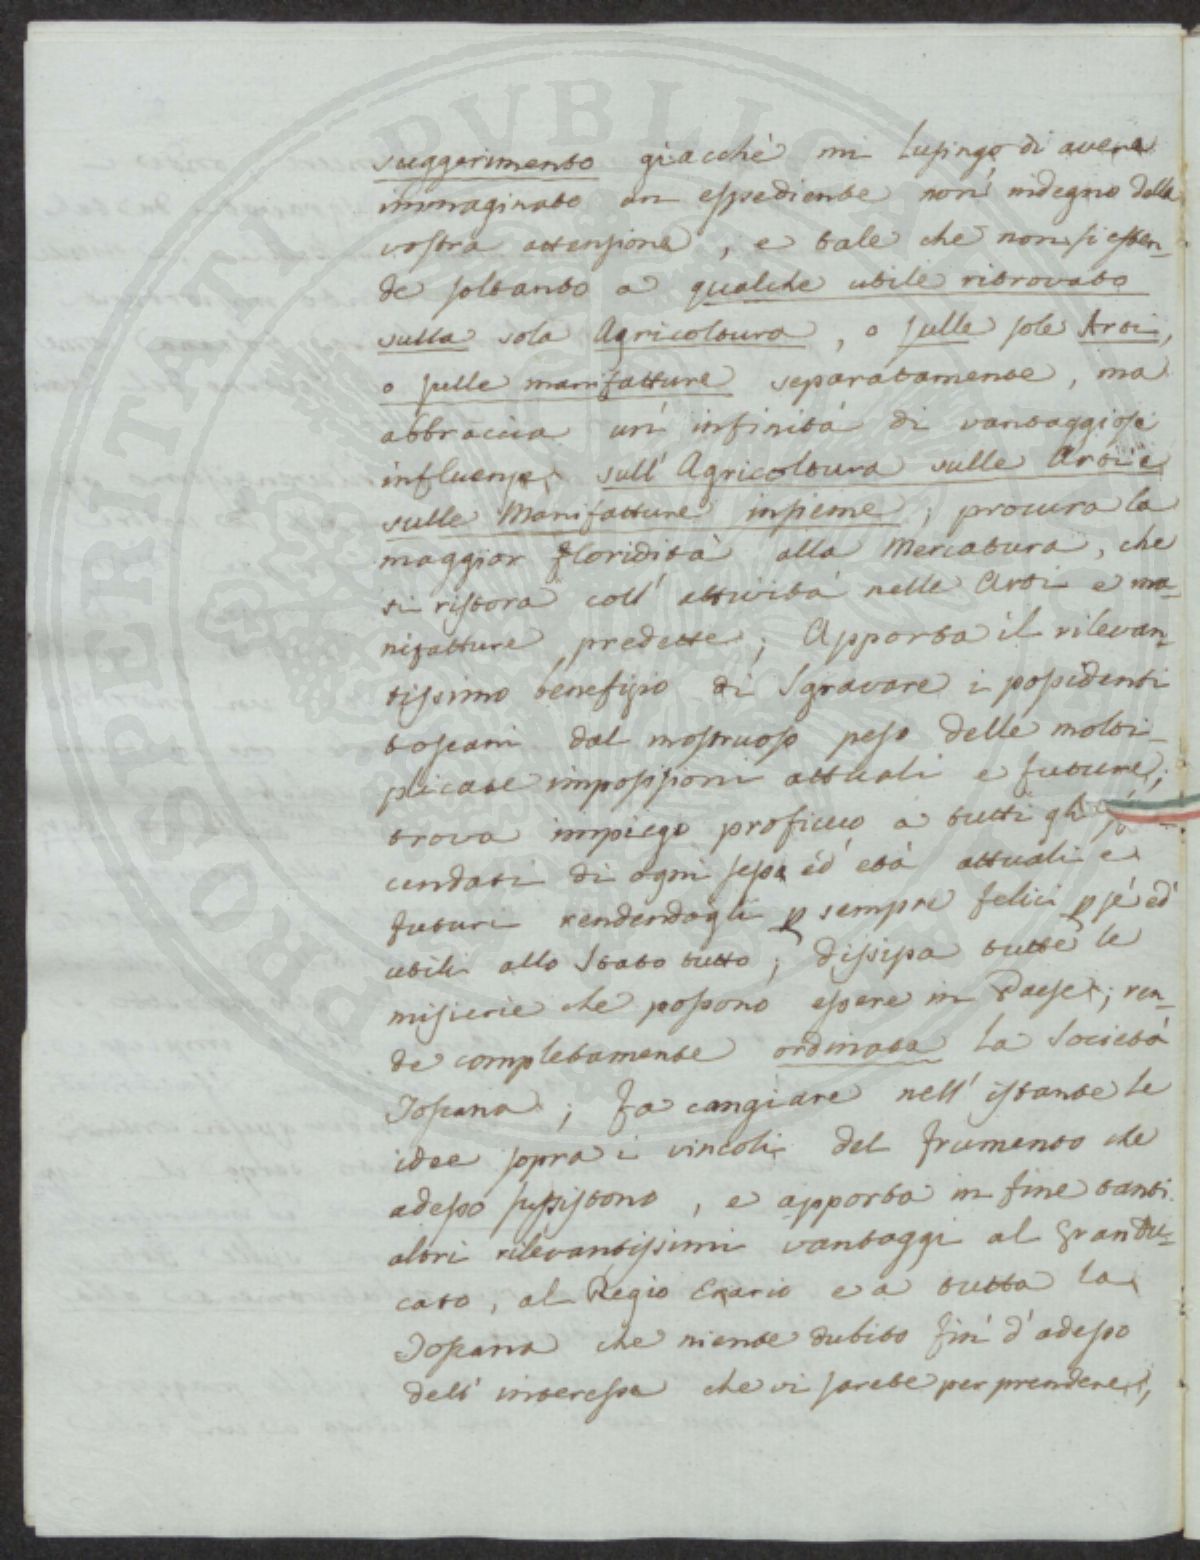 suggerimento giacchè mi lusingo di avere
immaginato un espediente non' indegno della
vostra attenzione, e tale che non si esten-
de soltanto a qualche utile ritrovato
sulla sola Agricoltura, o sulle sole Arti,
o sulle manifatture separatamente, ma
abbraccia un' infinità di vantaggiose
influenze sull' Agricoltura sulle Arti e
sulle Manifatture insieme; procura la
maggior floridità alla Mercatura, che
si ristora coll' attività nelle Arti e ma-
nifatture predette; Apporta il rilevan-
tissimo benefizio di Sgravare i possidenti
toscani dal mostruoso peso delle molti-
plicate imposizioni attuali e future;
trova impiego proficuo a tutti gli
cendati di ogni sesso ed' età attuali e
futuri rendendogli p sempre felici p sé ed'
utili allo Stato tutto; dissipa tutte le
miserie che possono essere in Paese; ren-
de completamente ordinata la Società
Toscana; fa cangiare nell' istante le
idee sopra i vincoli del frumento che
adesso sussistono, e apporta in fine tanti
altri rilevantissimi vantaggi al Grandu-
cato, al Regio Erario e a tutta la
Toscana che niente dubito fin' d' adesso
dell' interesse che vi sarete per prendere,
PROSPERITATI PVBLICAE